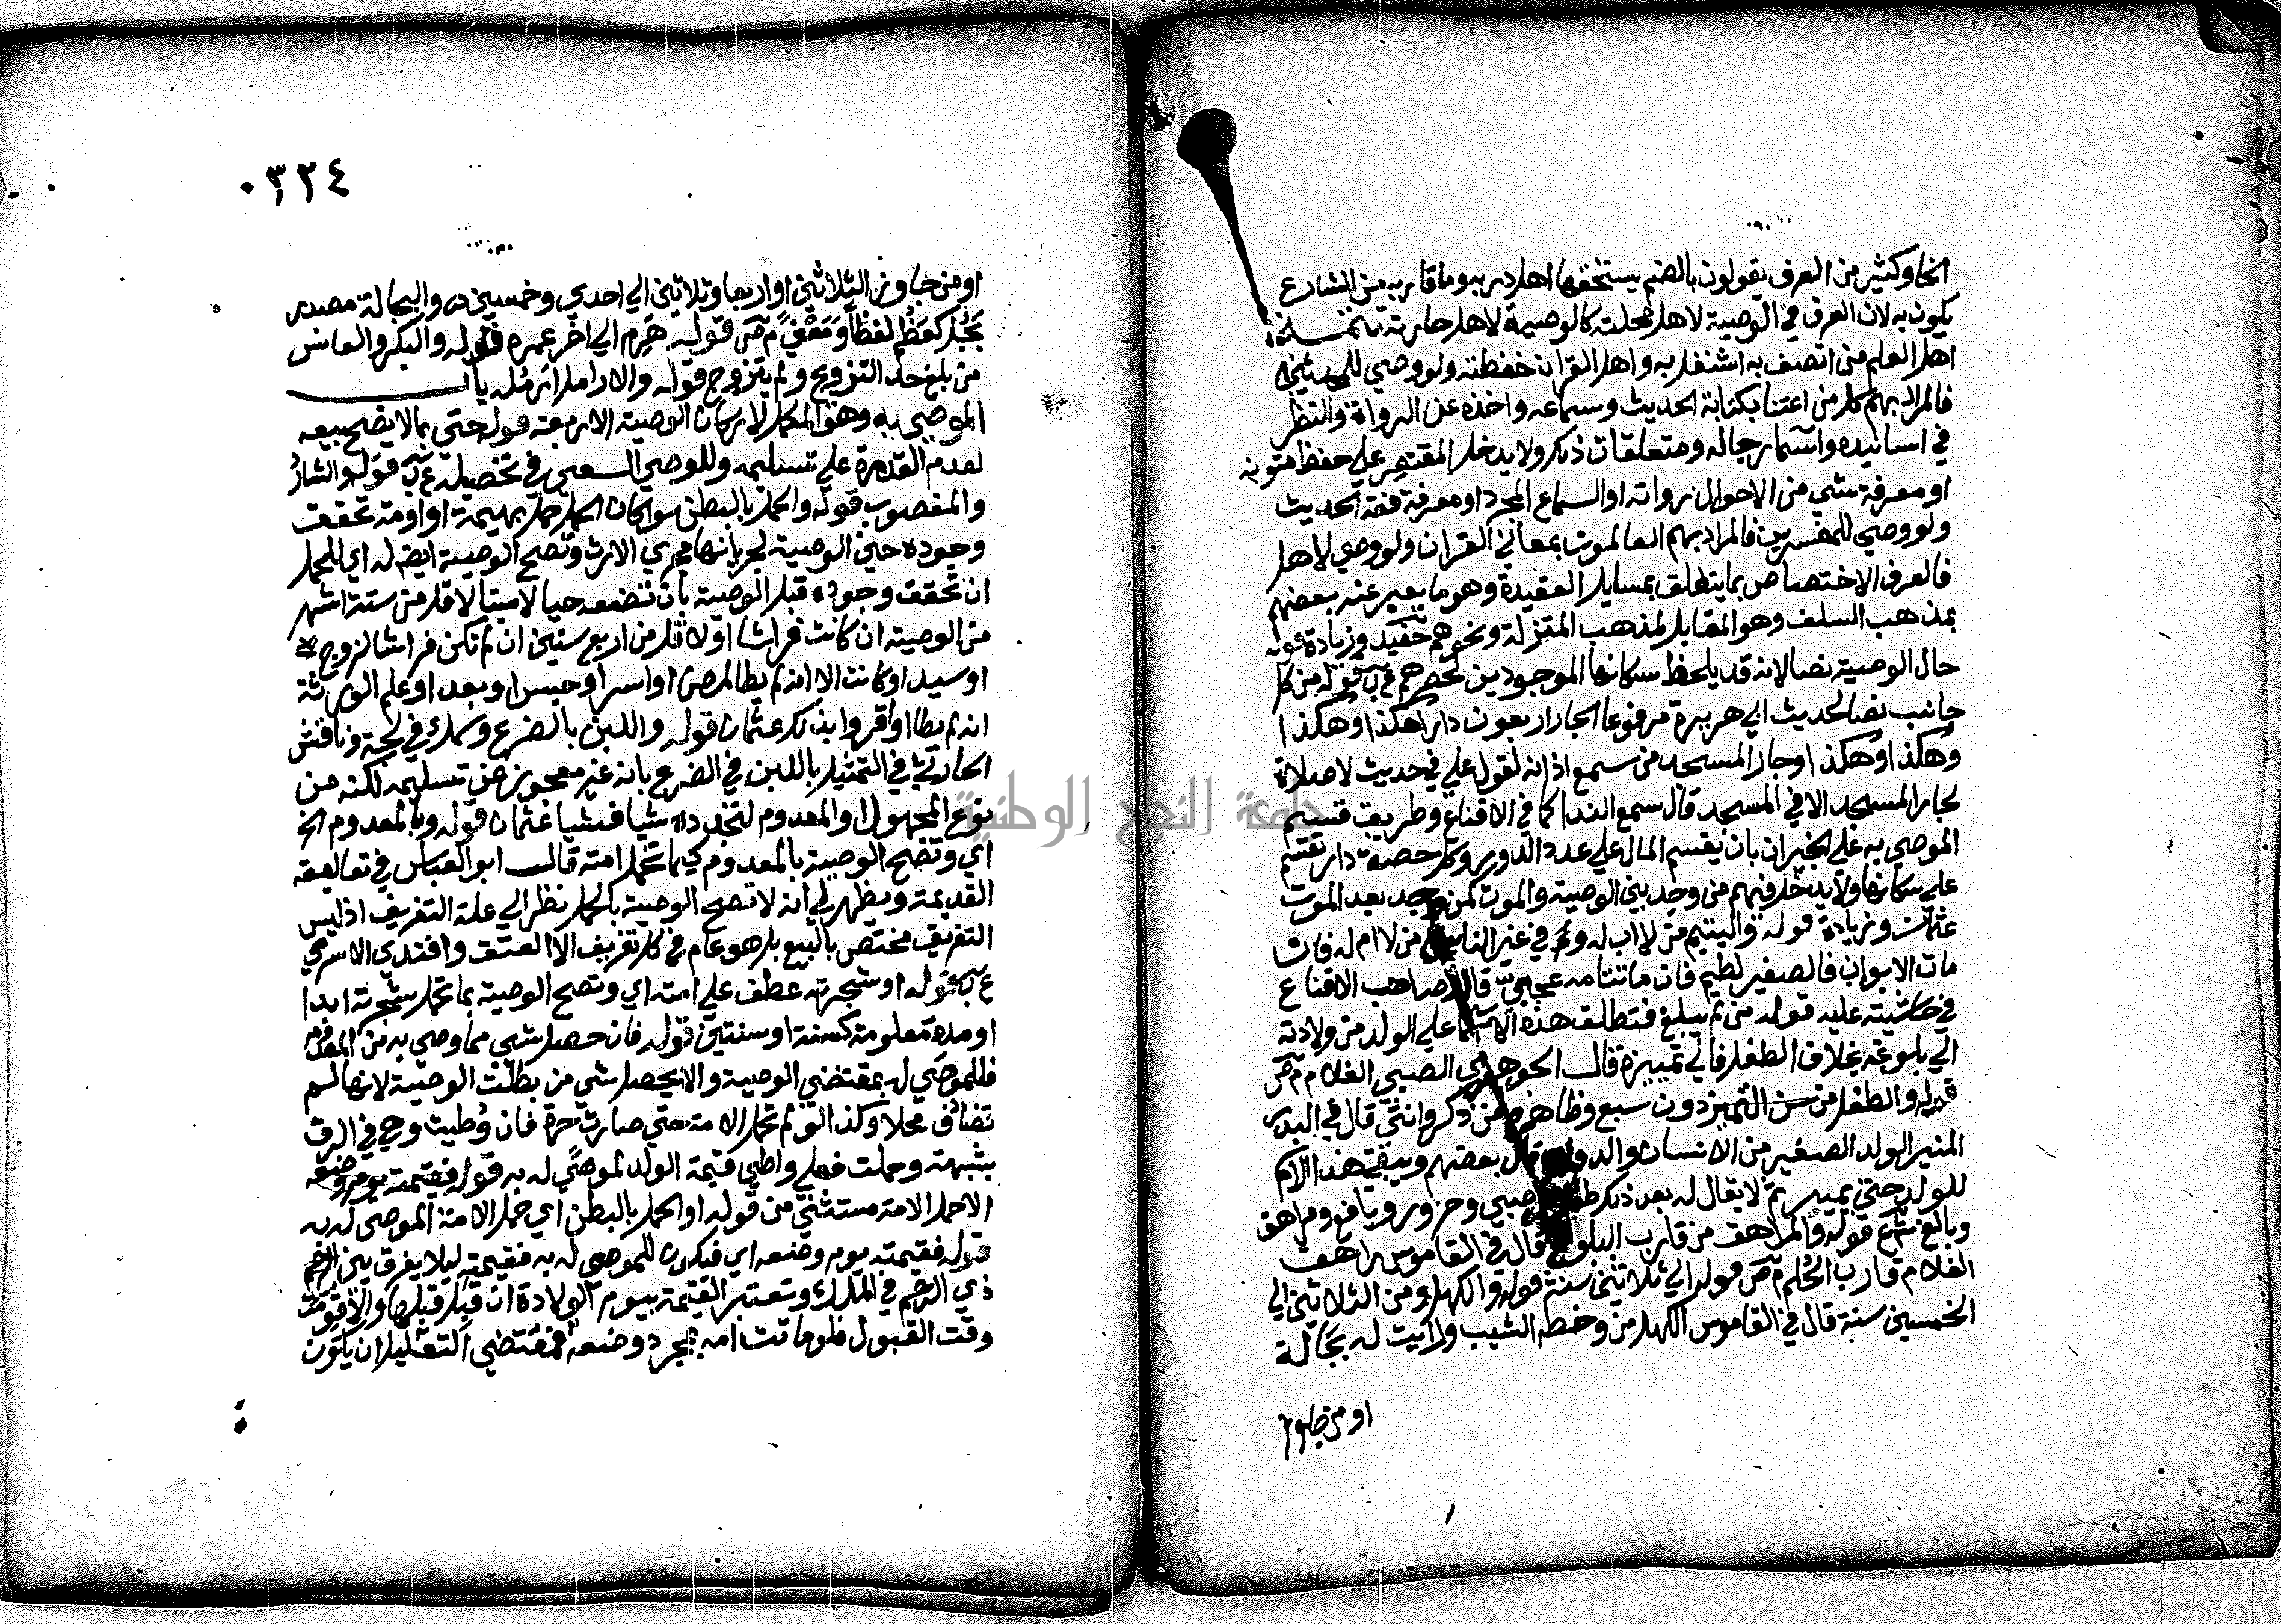 انحا وكثير من العرف يقولون بالضم يستحقها اهل دربه وما قاربه من الشارع
يكون به لان العرف في الوصية لاهل محلته كالوصية لاهل حارته
اهل العلم من اتصف به اشتغل به واهل القران حفظته ولو وصي للمحدثين
فالمراد بهم كل من اعتنا بكتابة الحديث وسماعه واخذه عن الرواة والنظر
في اسانيده واسما رجاله ومتعلقات ذلك ولا يدخل المقتصر علي حفظ متونه
او معرفة شي من الاحوال رواته او السماع المجرد او معرفة فقه الحديث
ولو وصي للمفسرين فالمراد بهم العالمون بمعاني القران ولو وصي لاهل
فالعرف الاختصاص بما يتعلق بمسايل العقيدة وهو ما يعبر عنه بعضهم
بمذهب السلف وهو المقابل لمذهب المعتزلة ونحوهم وزيادة قوله
حال الوصية نصا لانه قد يلحظ سكانها الموجودين لحصرهم ع ب قوله من كل
جانب نصا لحديث ابي هريرة مرفوعا الجار اربعون دارا هكذا وهكذا
وهكذا وهكذا وجار المسجد من سمع اذانه لقول علي في حديث لا صلاة
لجار المسجد الا في المسجد قال سمع الندا كما في الاقناع وطريق قسم
الموصي به علي الجيران بان يقسم المال علي عدد الدور وكل حصة دار تقسم
علي سكانها ولا يدخل فيهم من وجد بين الوصية والموت لمن وجد بعد الموت
عثمان وزيادة قوله واليتيم من لا اب له وفي غير الناس من لا ام له فان
مات الابوان فالصغير لطيم فان ماتت امه عجي قال صاحب الاقناع
في حاشيته عليه قوله من لم يبلغ فتطلق هذه الاسما علي الولد من ولادته
الي بلوغه بخلاف الطفل فالي تمييزه قال الجوهري الصبي الغلام م ص
قوله والطفل من سن التمييز دون سبع وظاهره من ذكر وانثي قال في البدر
المنير الولد الصغير من الانسان والدواب قال بعضهم ويبقي هذا الاسم
للولد حتي يميز ثم لا يقال له بعد ذلك طفل صبي وحزور ويافع ومراهق
وبالغ ش ع قوله والمراهق من قارب البلوغ قال في القاموس راهق
الغلام قارب الحلم م ص قوله الي ثلاثين سنة قوله والكهل ومن الثلاثين الي
الخمسين سنة قال في القاموس الكهل من وخطه الشيب ورايت له بجالة
او من جاوز
٠٣٢٤
او من جاوز الثلاثين او اربعا وثلاثين الي احدي وخمسين والبجالة مصدر
بجل كعظم لفظا ومعني م ص قوله هرم الي اخر عمره قوله والبكر والعانس
من بلغ حد التزويج ولم يتزوج قوله والارامل ارمله باب
الموصي به وهذا المكمل لاركان الوصية الاربعة قوله حتي بما لا يصح بيعه
لعدم القدرة علي تسليمه وللوصي السعي في تحصيله ع ب قوله والشارد
والمغصوب قوله والحمل بالبطن سوا كان الحمل حمل بهيمة او امة تحقق
وجوده حين الوصية لجريانها مجري الارث وتصح الوصية ايضا له اي للحمل
ان تحقق وجوده قبل الوصية بان تضعه حيا لا ميتا لاقل من ستة اشهر
من الوصية ان كانت فراشا او لاقل من اربع سنين ان لم تكن فراشا لزوج
او سيد او كانت الا انه لم يطا لمرض او اسر او حبس او بعد او علم الورثة
انه لم يطا او اقروا بذلك عثمان قوله واللبن بالضرع وسمك في لجة وناقش
الحارثي في التمثيل باللبن في الضرع بانه غير معجوز عن تسليمه لكنه من
نوع المجهول او المعدوم لتجدده شيا فشيا عثمان قوله وبالمعدوم الخ
اي وتصح الوصية بالمعدوم كبما تحمل امته قال ابو العباس في تعاليقه
القديمة ويظهر لي انه لا تصح الوصية بالحمل نظرا الي علة التفريق اذ ليس
التفريق مختص بالبيع بل هو عام في كل تفريق الا العتق وافتدي الاسري
ع ب قوله او شجرته عطف علي امته اي وتصح الوصية بما تحمل شجرته ابدا
او مدة معلومة كسنة او سنتين قوله فان حصل شي مما وصي به من المعدوم
فللموصي له بمقتضي الوصية والا يحصل شي من بطلت الوصية لانها لم
تصادف محلا وكذا لو لم تحمل الامة حتي صارت حرة فان وطيت وهي في الرق
بشبهة وحملت فعلي واطي قيمة الولد لموصي له به قوله فقيمته يوم وضعه
الا حمل الامة مستثني من قوله او الحمل بالبطن اي حمل الامة الموصي له به
قوله فقيمته يوم وضعه اي فيكون للموصي له به فقيمته ليلا يفرق بين الرحم
ذي الرحم في الملك وتعتبر القيمة بيوم الولادة ان قبل قبلها والا قومت
وقت القبول فلو ماتت امه بمجرد وضعه فمقتضي التعليل ان يكون
جامعة النجاح الوطنية